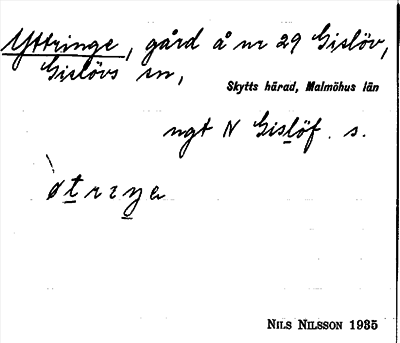 Yttringe, gård å nr 29 Gislöv,
Gislövs sn,
Skytts härad, Malmöhus län
ngt N Gislöf. s.
NILS NILSSON 1935